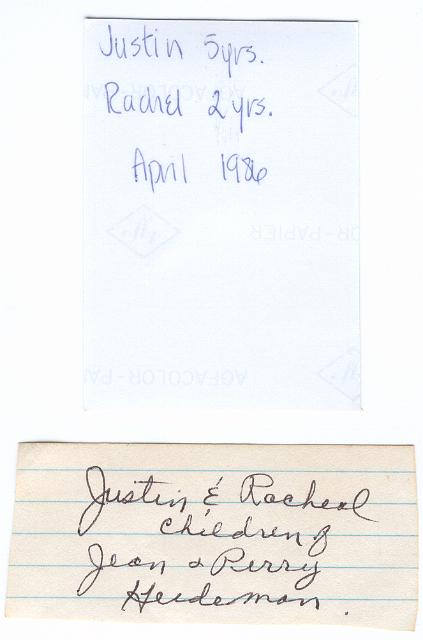 Justin 5yrs.
Rachel 2yrs.
April 1986
OR-PAPIER
AGFACOLOR-PA
Justin & Racheal
Children of
Jean & Perry
Heideman.